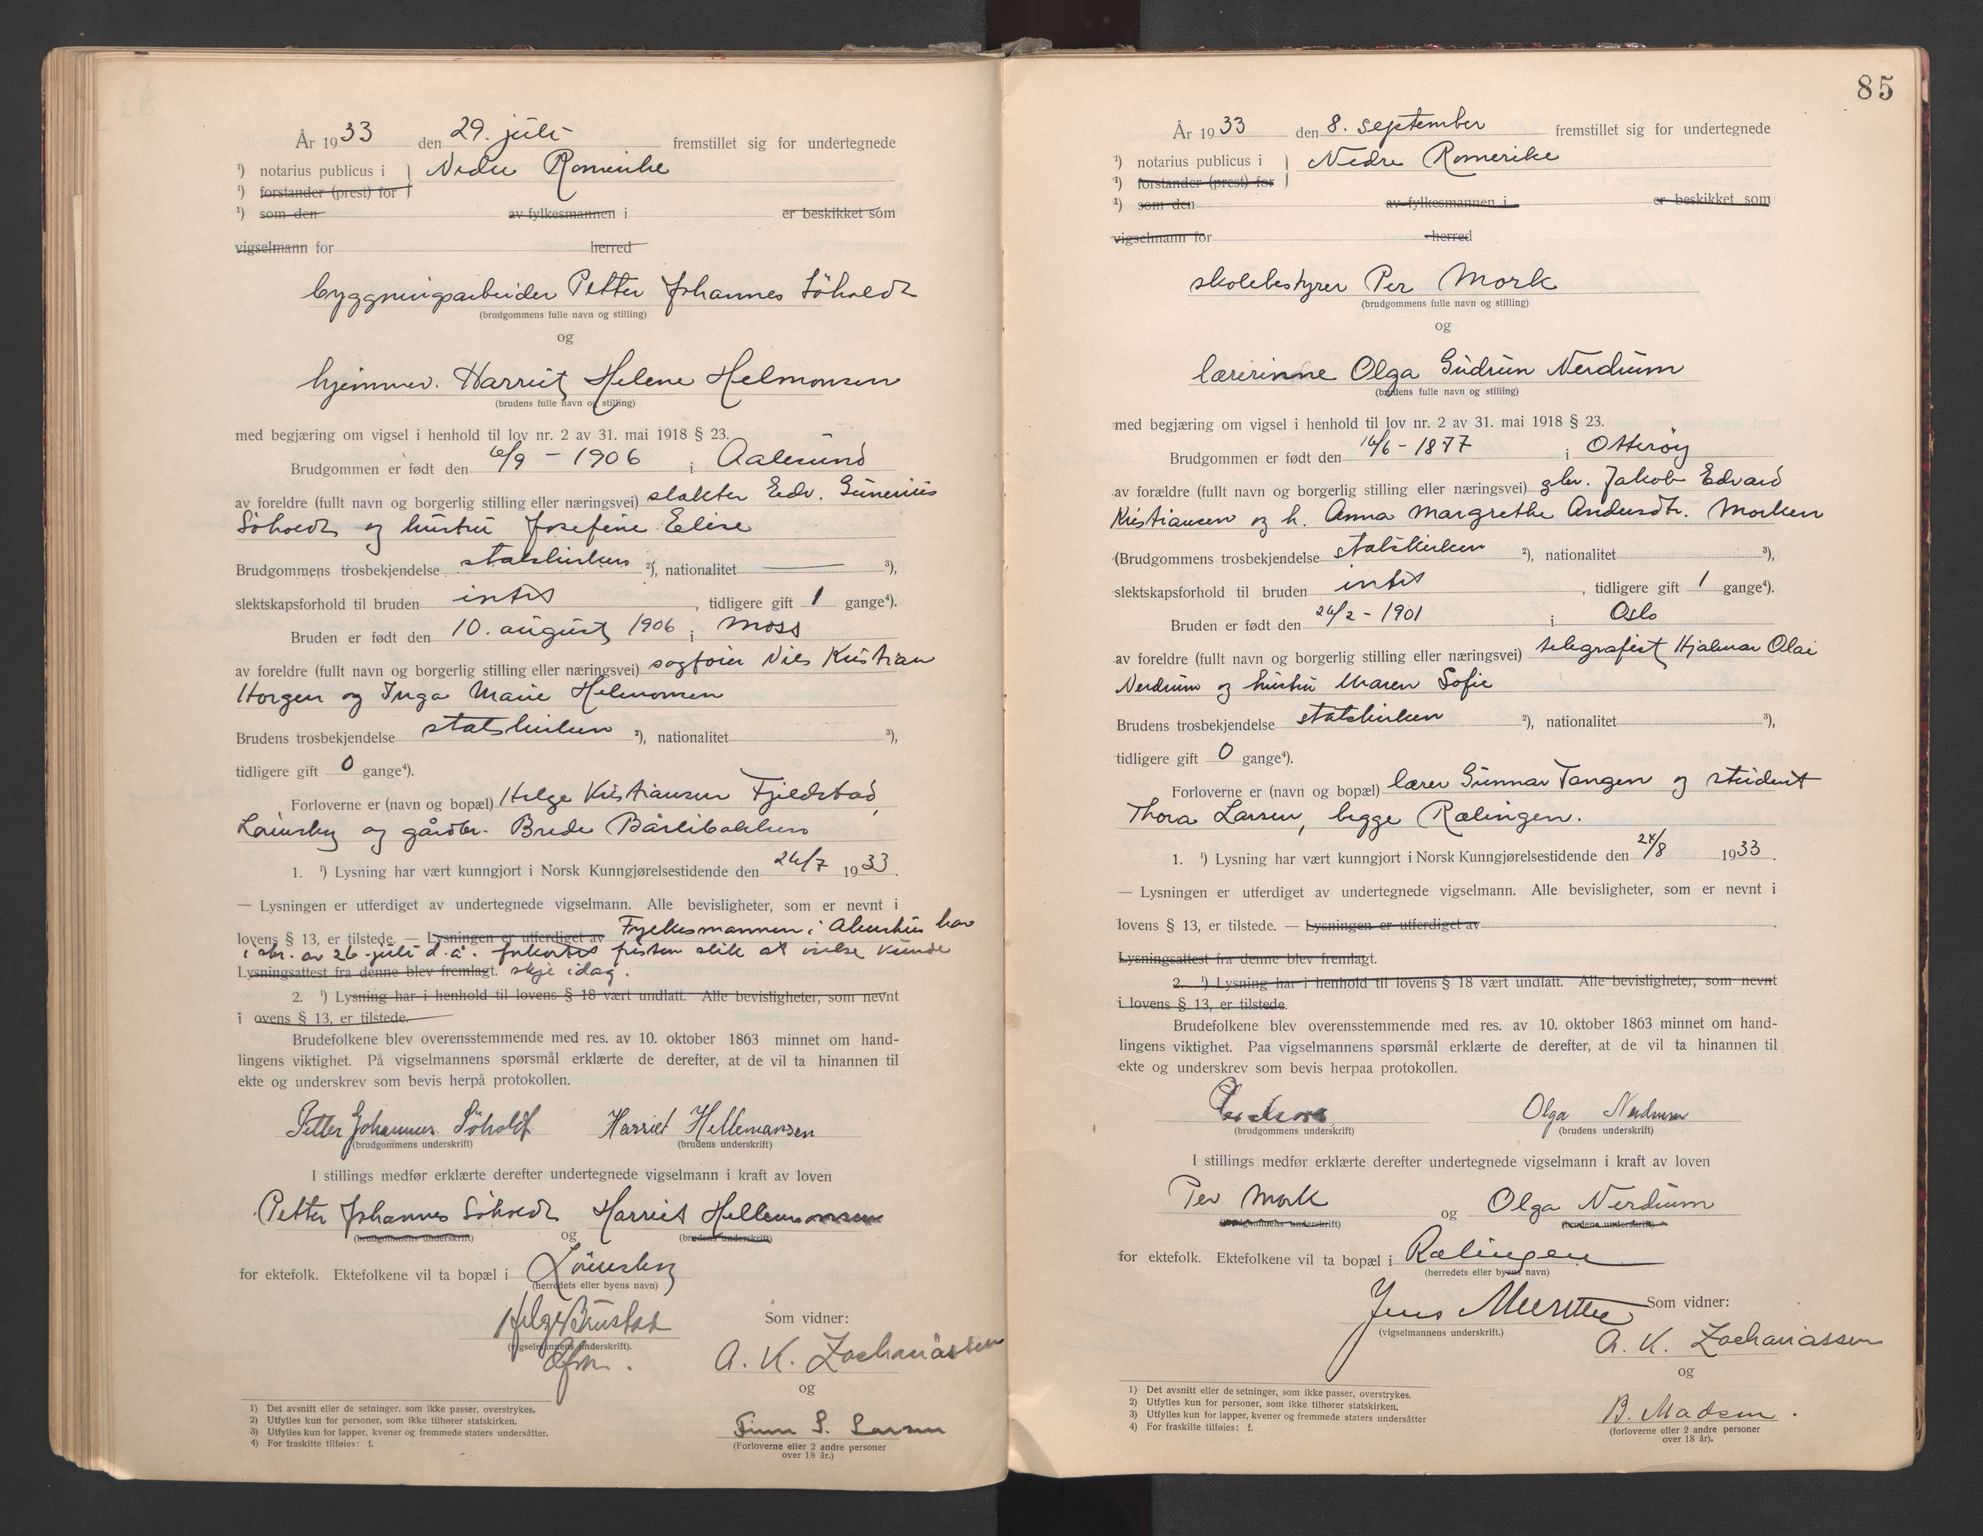 År 1933 den 29. juli fremstillet sig for undertegnede
1) notarius publicus i Nedre Romerike
1) forstander (prest) for
1) som den av fylkesmannen i er beskikket som
vigselmann for herred
byggningsarbeider Petter Johannes Söholdt
(brudgommens fulle navn og stilling)
og
hjemmev. Harriet Helene Helmonsen
(brudens fulle navn og stilling)
med begjæring om vigsel i henhold til lov nr. 2 av 31. mai 1918 § 23.
Brudgommen er født den /9 - 1906 i Aalesund
av foreldre (fullt navn og borgerlig stilling eller næringsvei) slakter Edv. Gunerius
Söholdt og hustru Josefine Elise
Brudgommens trosbekjendelse statskirken 2), nationalitet — 3),
slektskapsforhold til bruden intet, tidligere gift 1 gange4).
Bruden er født den 10. august 1906 i Moss
av foreldre (fullt navn og borgerlig stilling eller næringsvei) sagfører Nils Kristian
Horgen og Inga Marie Helmonsen
Brudens trosbekjendelse statskirken 2), nationalitet 3),
tidligere gift 0 gange4).
Forloverne er (navn og bopæl) Helge Kristiansen Fjeldstad,
Lörenskog og gårdbr. Brede Bårlibakken
1. 1) Lysning har vært kunngjort i Norsk Kunngjørelsestidende den 26/7 1933.
— Lysningen er utferdiget av undertegnede vigselmann. Alle bevisligheter, som er nevnt i
lovens § 13, er tilstede. — Lysningen er utferdiget av Fylkesmannen i Akershus har
i skr. av 26. juli d.å. forkortet fristen slik at vielse kunde
Lysningsattest fra denne blev fremlagt. skje idag.
2. 1) Lysning har i henhold til lovens § 18 vært undlatt. Alle bevisligheter, som nevnt
i ovens § 13, er tilstede.
Brudefolkene blev overensstemmende med res. av 10. oktober 1863 minnet om hand-
lingens viktighet. På vigselmannens spørsmål erklærte de derefter, at de vil ta hinannen til
ekte og underskrev som bevis herpå protokollen.
Petter Johannes Söholdt Harriet Hellemansen
(brudgommens underskrift) (brudens underskrift)
I stillings medfør erklærte derefter undertegnede vigselmann i kraft av loven
Petter Johannes Söholdt Harriet Hellemonsen
(brudgommens underskrift) og (brudens underskrift)
for ektefolk. Ektefolkene vil ta bopæl i Lörenskog
(herredets eller byens navn)
Helge Som vidner:
(vigselmannens underskrift).
A. K. Zachariassen
og
Finn S. Larsen
1) Det avsnitt eller de setninger, som ikke passer, overstrykes.
2) Utfylles kun for personer, som ikke tilhører statskirken.
3) Utfylles kun for lapper, kvener og fremmede staters undersåtter.
4) For fraskilte tilføies: f.
(Forloverne eller 2 andre personer
over 18 år.)
85
År 1933 den 8. september fremstillet sig for undertegnede
1) notarius publicus i Nedre Romerike
1) forstander (prest) for
1) som den av fylkesmannen i er beskikket som
vigselmann for herred
skolebestyrer Per Mork
(brudgommens fulle navn og stilling)
og
lærerinne Olga Gudrun Nerdrum
(brudens fulle navn og stilling)
med begjæring om vigsel i henhold til lov nr. 2 av 31. mai 1918 § 23.
Brudgommen er født den 16/6 - 1877 i Otterøy
av forældre (fullt navn og borgerlig stilling eller næringsvei) gbr. Jakob Edvard
Kristiansen og h. Anna Margrethe Andersdtr. Morken
(Brudgommens trosbekjendelse statskirken 2), nationalitet 3),
slektskapsforhold til bruden intet, tidligere gift 1 gange4).
Bruden er født den 26/2 - 1901 i Oslo
av foreldre (fullt navn og borgerlig stilling eller næringsvei) telegrafist Hjalmar Olai
Nerdrum og hustru Maren Sofie
Brudens trosbekjendelse statskirken 2), nationalitet 3),
tidligere gift 0 gange4).
Forloverne er (navn og bopæl) lærer Gunnar Tangen og student
Thora Larsen, begge Rælingen.
1. 1) Lysning har vært kunngjort i Norsk Kunngjørelsestidende den 24/8 1933.
— Lysningen er utferdiget av undertegnede vigselmann. Alle bevisligheter, som er nevnt i
lovens § 13, er tilstede. — Lysningen er utferdiget av
Lysningsattest fra denne blev fremlagt.
2. 1) Lysning har i henhold til lovens § 18 vært undlatt. Alle bevisligheter, som nevnt
i lovens § 13, er tilstede.
Brudefolkene blev overensstemmende med res. av 10. oktober 1863 minnet om hand-
lingens viktighet. Paa vigselmannens spørsmål erklærte de derefter, at de vil ta hinannen til
ekte og underskrev som bevis herpaa protokollen.
Per Mork Olga Nerdrum
(brudgommens underskrift) (brudens underskrift)
I stillings medfør erklærte derefter undertegnede vigselmann i kraft av loven
Per Mork og Olga Nerdrum
(brudgommens underskrift) (brudens underskrift)
for ektefolk. Ektefolkene vil ta bopæl i Rælingen
(herredets eller byens navn)
Jens Som vidner:
(vigselmannens underskrift.)
A. K. Zachariassen
og
B. Madsen.
1) Det avsnitt eller de setninger, som ikke passer, overstrykes.
2) Utfylles kun for personer, som ikke tilhører statskirken.
3) Utfylles kun for lapper, kvener og fremmede staters undersåtter
4) For fraskilte tilføies: f.
(forloverne eller 2 andre personer
over 18 år).